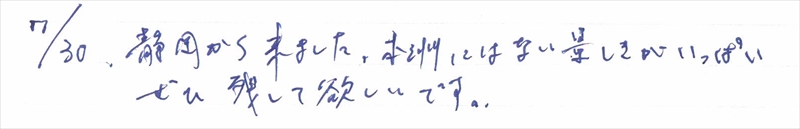 7/30、静岡から来ました。本州にはない景しきがいっぱい
ぜひ残して欲しいです。